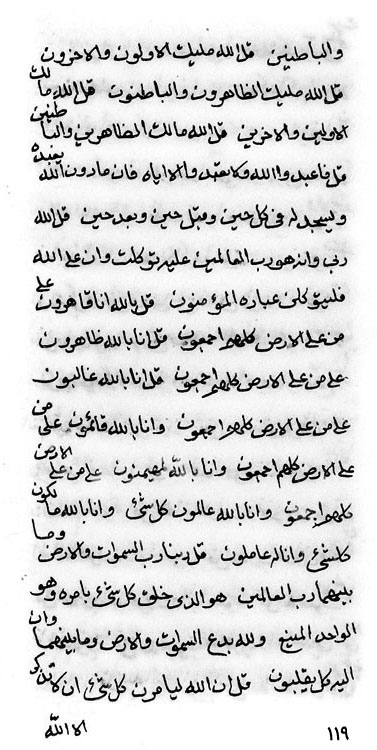 والباطنين قل الله مليك الاولون والاخرون
قل الله مليك الظاهرون والباطنون قل الله مالك
الاولين والاخرين قل الله مالك الظاهرين والباطنين
قل فاعبدوا الله ولا تعبدوا الا اياه فان مادون الله يعبده
ويسجد له في كل حين وقبل حين وبعد حين قل الله
ربي وانه هو رب العالمين عليه توكلت وان على الله
فليتوكلن عباده المؤمنون قل بالله انا قاهرون على
من على الارض كلهم اجمعون قل انا بالله ظاهرون
على من على الارض كلهم اجمعون قل انا بالله غالبون
على من على الارض كلهم اجمعون وانا بالله قائمون على من
على الارض كلهم اجمعون وانا بالله لمهيمنون على من على الارض
كلهم اجمعون وانا بالله عالمون كل شئ وانا بالله ما نكون
كل شئ وانا له عاملون قل ربنا رب السموات والارض وما
بينهما رب العالمين هو الذي خلق كل شئ بامره وهو
الواحد المنيع ولله بدع السموات والارض وما بينهما وان
اليه كل يقلبون قل ان الله ليامرن كل شئ ان لا تذكر
الا الله
١١٩